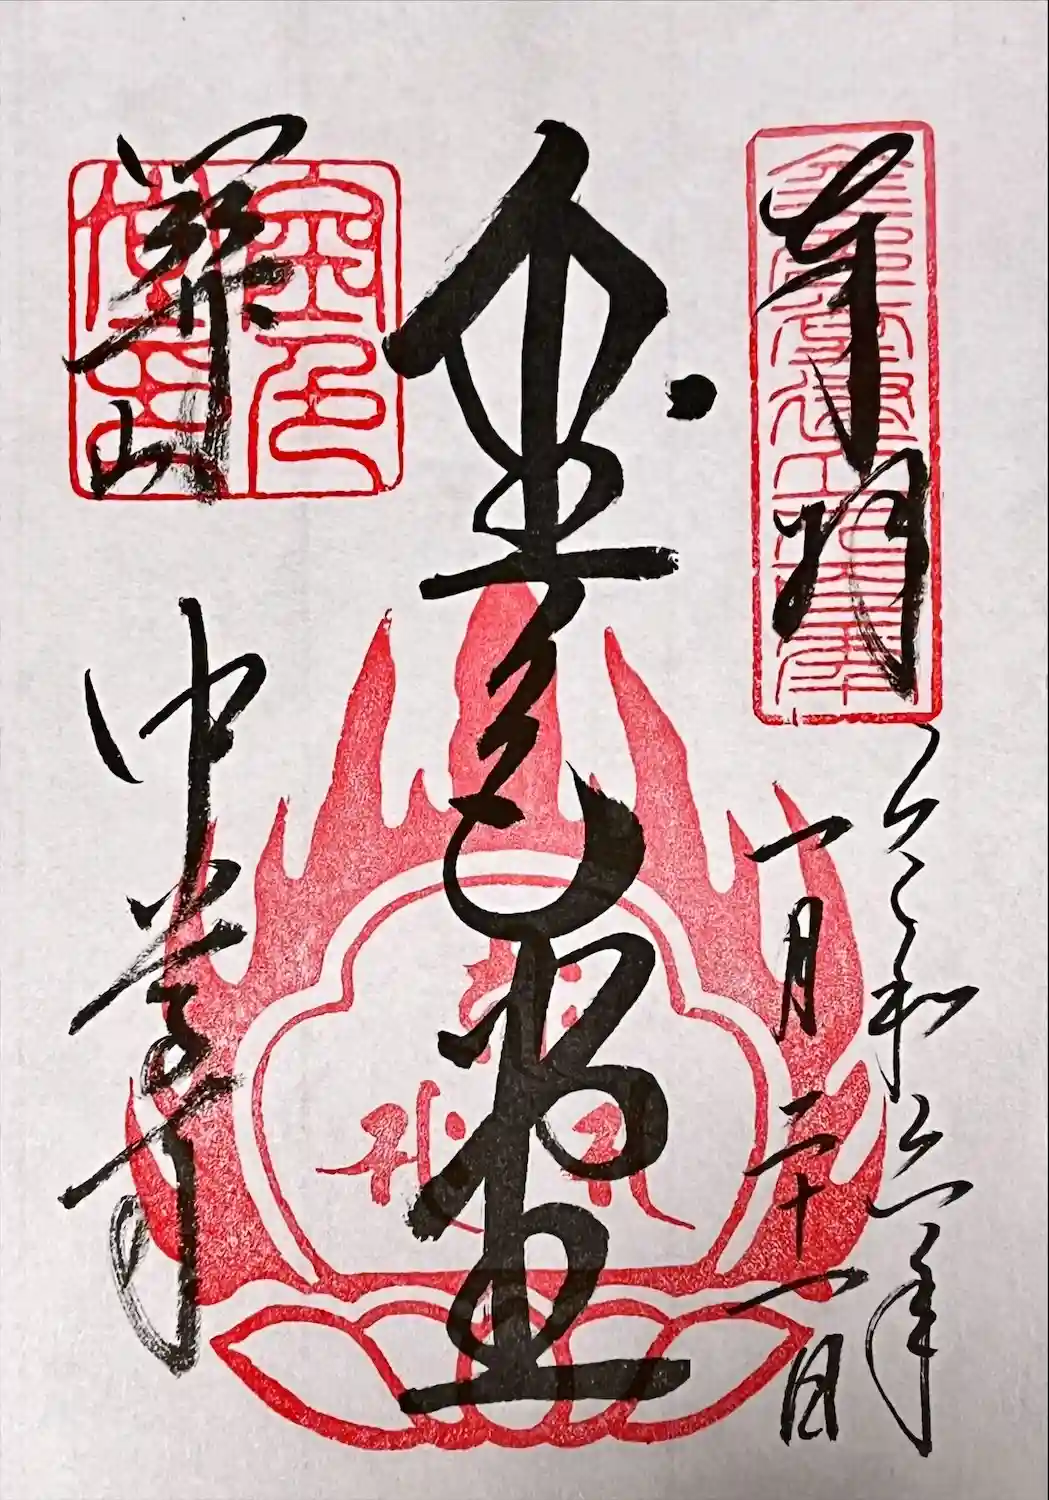 奉拝
令和六年
一月二十一日
金色堂
関山
中尊寺
金色
堂印